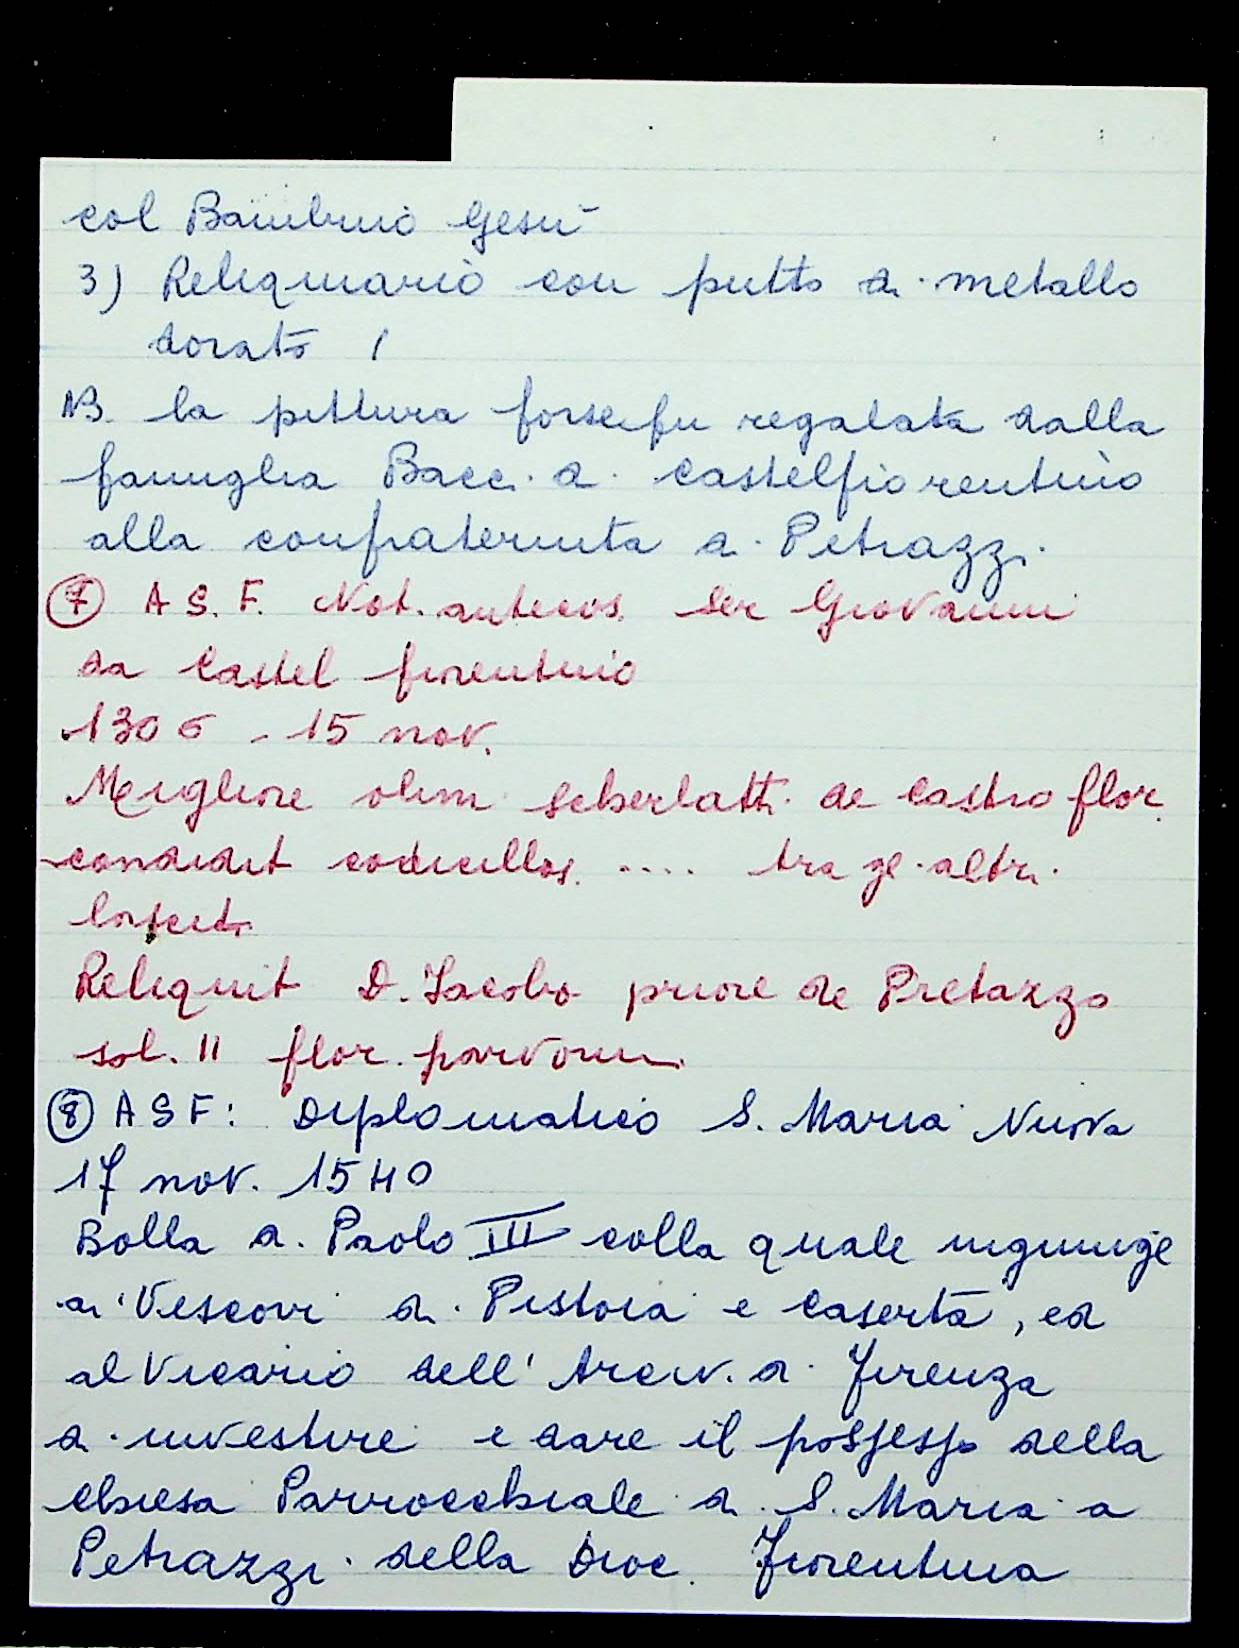 col Bambino Gesù
3) Reliquiario con putto di metallo
dorato /
NB. la pittura forse fu regalata dalla
famiglia Bacci di Castelfiorentino
alla confraternita di Petrazzi.
⑦ A S. F. Not. antecos. Ser Giovanni
da Castel fiorentino
1306 - 15 nov.
Megliore olim Scherlatti de Castro flor.
condidit codicillos. .... tra gli altri
lasciti
Reliquit D. Jacobo priore de Pretazzo
sol. II flor. parvorum.
⑧ A S F: Diplomatico S. Maria Nuova
17 nov. 1540
Bolla di Paolo III colla quale ingiunge
ai Vescovi di Pistoia e Caserta, ed
al Vicario dell' Arciv. di Firenze
di investire e dare il possesso della
chiesa Parrocchiale di S. Maria a
Petrazzi della Dioc. Fiorentina